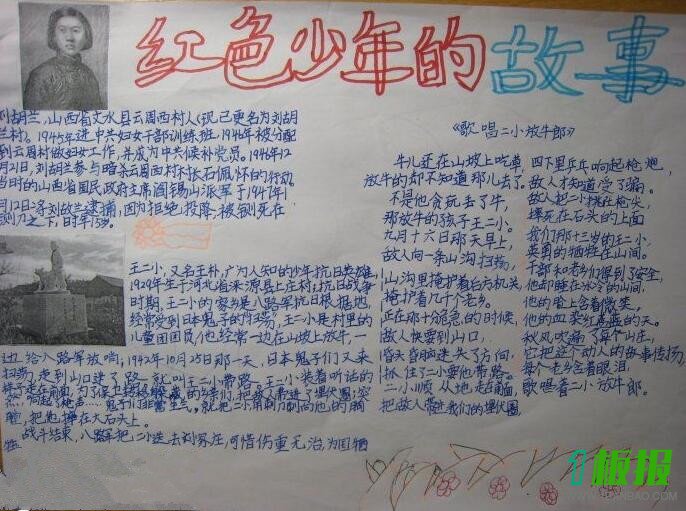 红色少年的故事
刘胡兰,山西省文水县云周西村人(现已更名为刘胡
兰村)。1945年进中共妇女干部训练班,1946年被分配
到云周村做妇女工作,并成为中共候补党员。1946年12
月21日,刘胡兰参与暗杀云周西村村长石佩怀的行动。
当时的山西省国民政府主席阎锡山派军于1947年1
月12日将刘胡兰逮捕,因为拒绝投降,被铡死在
铡刀之下,时年15岁。
王二小,又名王朴,广为人知的少年抗日英雄
1929年生于河北省涞源县上庄村。抗日战争
时期,王二小的家乡是八路军抗日根据地,
经常受到日本鬼子的"扫荡",王二小是村里的
儿童团团员,他经常一边在山坡上放牛,一
边给八路军放哨,1942年10月25日那一天,日本鬼子们又来
扫荡,走到山口迷了路,就叫王二小带路。王二小装着听话的
样子走在前面,为了保卫转移躲藏的乡亲们,把敌人带进了埋伏圈;突
然,响起了枪声,鬼子们非常生气,就把二小用刺刀刺向他的胸
膛,把他摔在大石头上。
战斗结束,八路军把二小送去刘家庄,可惜伤重无治,为国牺
牲
《歌唱二小放牛郎》
牛儿还在山坡上吃草,
放牛的却不知道那儿去了。
不是他贪玩丢了牛,
那放牛的孩子王二小。
九月十六日那天早上,
敌人向一条山沟扫荡,
山沟里掩护着后方机关,
掩护着几千老乡。
正在那十分危急的时候,
敌人快要到山口,
昏头昏脑迷失了方向,
抓住了二小要他带路。
二小顺从地走在前面,
把敌人带进我们的埋伏圈,
四下里乒乓响起枪炮,
敌人才知道受了骗。
敌人把二小挑在枪尖,
摔死在石头的上面
我们那十三岁的王二小,
英勇的牺牲在山间。
干部和老乡们得到了安全,
他却睡在冰冷的山间,
他的脸上含着微笑,
他的血染红蓝蓝的天。
秋风吹遍了每个山庄,
它把这个动人的故事传扬,
每个老乡含着眼泪,
歌唱着二小放牛郎。
板报